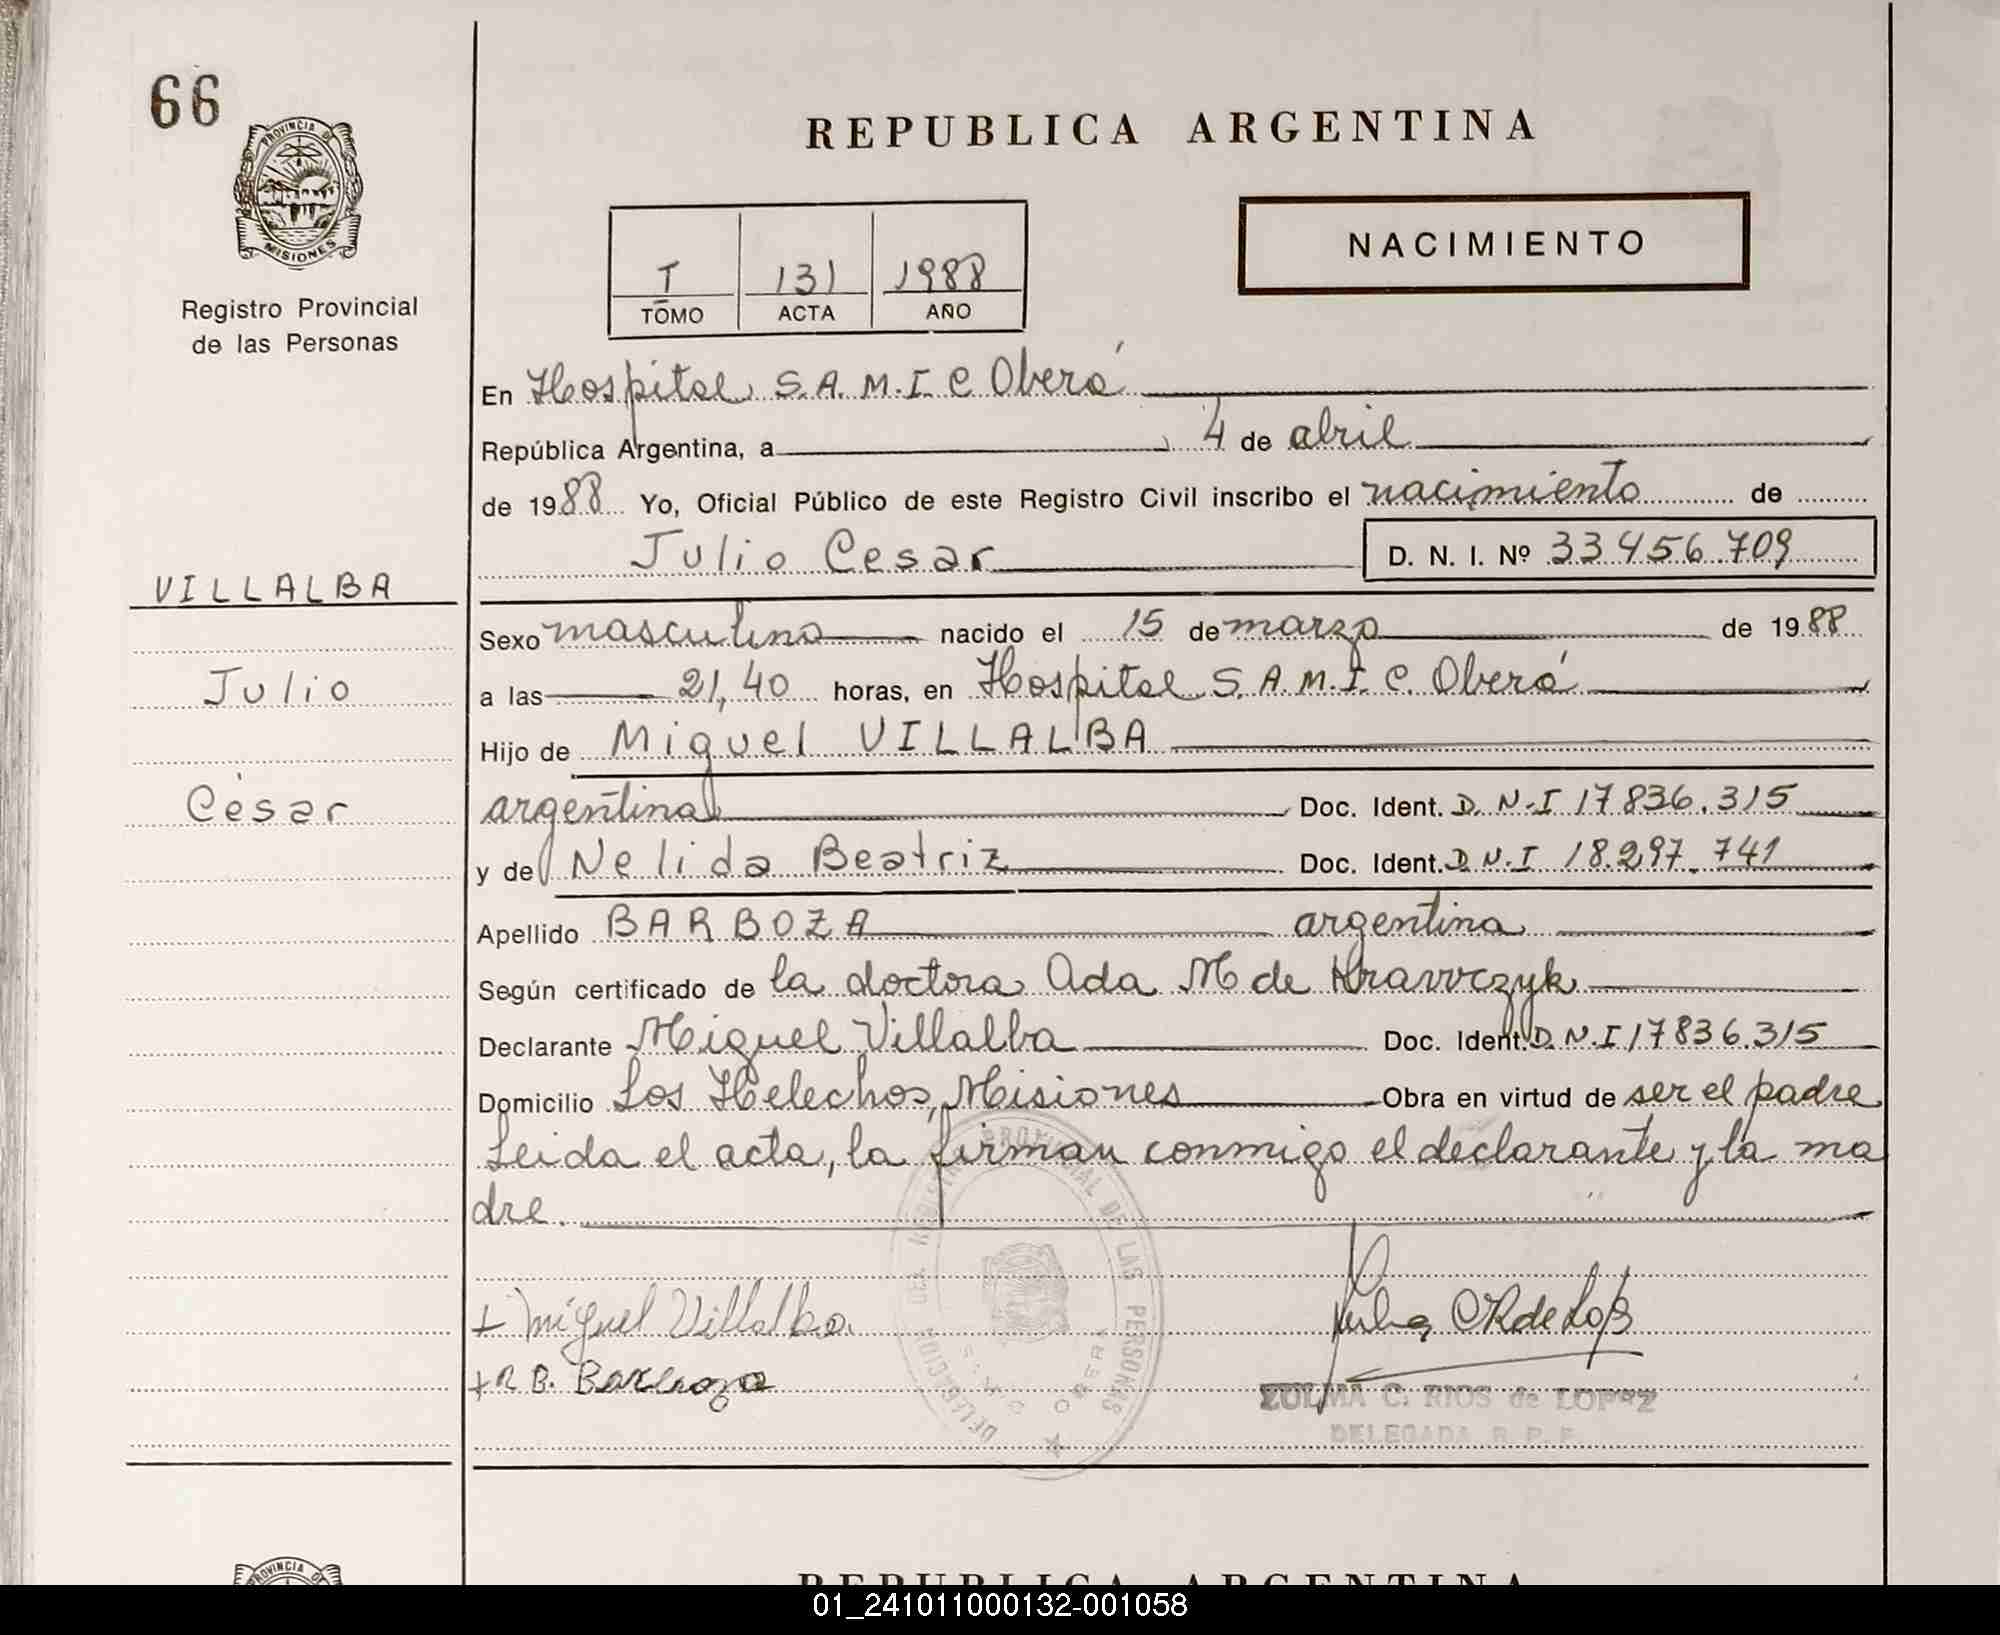 66
PROVINCIA DE
MISIONES
Registro Provincial
de las Personas
REPUBLICA ARGENTINA
NACIMIENTO
I 131 1988
TOMO ACTA AÑO
En Hospital S.A.M.I.C Oberá
República Argentina, a 4 de abril
de 1988 Yo, Oficial Público de este Registro Civil inscribo el nacimiento de
Julio Cesar D. N. I. Nº 33456.709
VILLALBA
Julio
César
Sexo masculino nacido el 15 de marzo de 1988
a las 21,40 horas, en Hospital S.A.M.I.C. Oberá
Hijo de Miguel VILLALBA
argentina Doc. Ident. D.N.I 17836.315
y de Nelida Beatriz Doc. Ident. D.N.I 18.297.741
Apellido BARBOZA argentina
Según certificado de la doctora Ada M de Krawczyk
Declarante Miguel Villalba Doc. Ident. D.N.I 17836.315
Domicilio Los Helechos, Misiones Obra en virtud de ser el padre
Leida el acta, la firman conmigo el declarante y la ma
dre.
DELEGACION DEL REGISTRO PROVINCIAL DE LAS PERSONAS
OBERA
+ Miguel Villalba
+ B. Barboza
ZULMA C. RIOS de LOPEZ
DELEGADA R. P. P.
PROVINCIA DE
REPUBLICA ARGENTINA
01_241011000132-001058